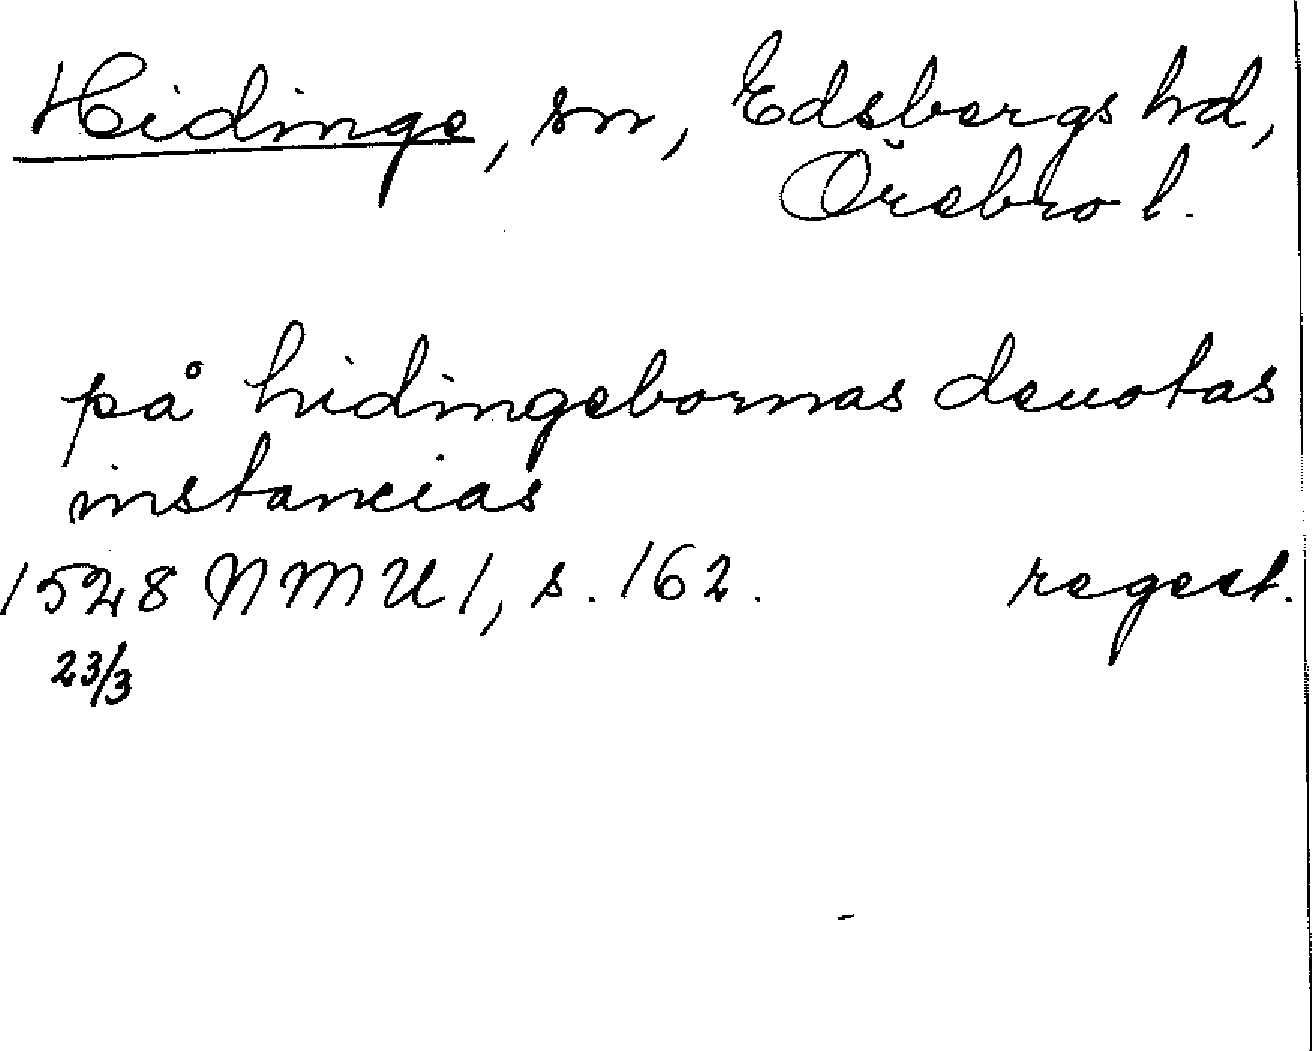 Hidinge, sn, Edsbergs hd,
Örebro l.
på hidingebornas deuotas
instancias
1528 NMU 1, s. 162. regest.
23/3